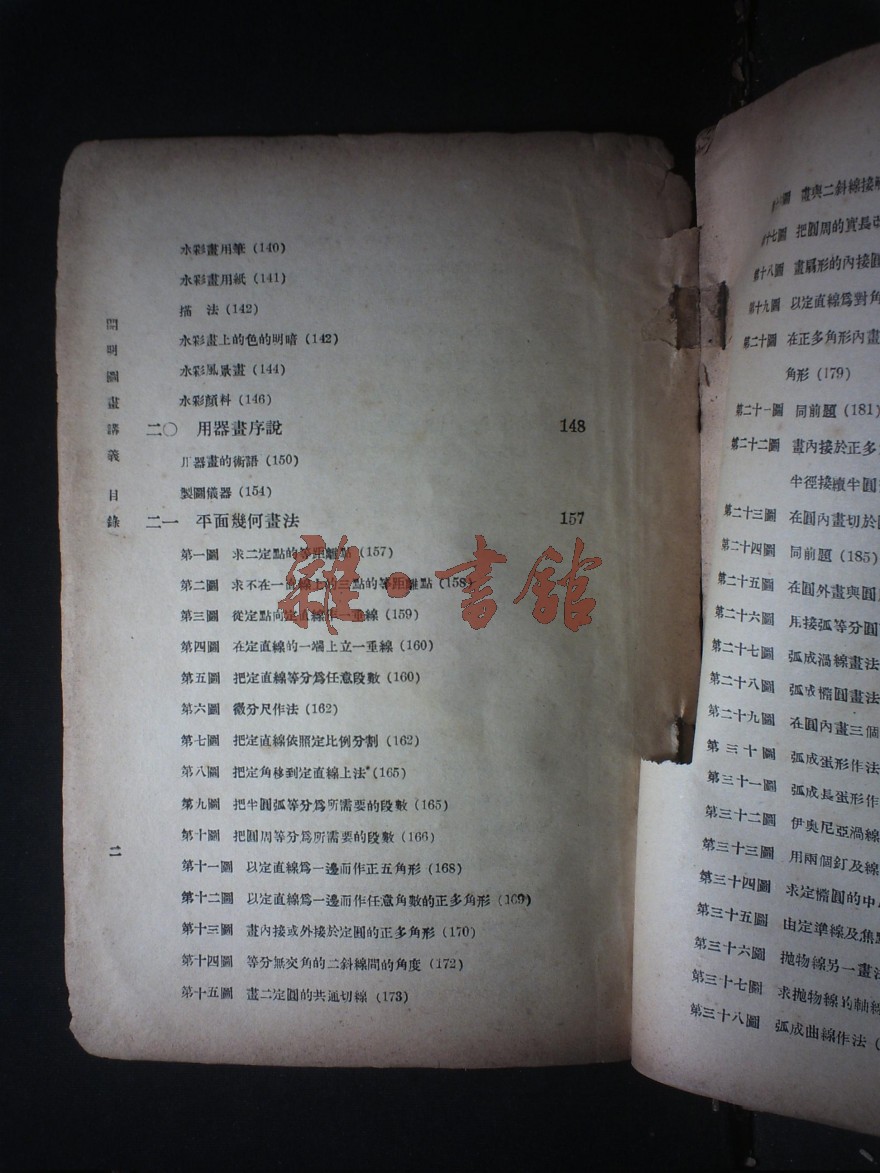 水彩畫用筆 (140)
水彩畫用紙 (141)
描　法 (142)
水彩畫上的色的明暗 (142)
水彩風景畫 (144)
水彩顏料 (146)
二〇　用器畫序說　148
用器畫的術語 (150)
製圖儀器 (154)
二一　平面幾何畫法　157
第一圖　求二定點的等距離點 (157)
第二圖　求不在一直線上的三點的等距離點 (158)
第三圖　從定點向定直線作一垂線 (159)
第四圖　在定直線的一端上立一垂線 (160)
第五圖　把定直線等分爲任意段數 (160)
第六圖　微分尺作法 (162)
第七圖　把定直線依照定比例分割 (162)
第八圖　把定角移到定直線上法 (165)
第九圖　把半圓弧等分爲所需要的段數 (165)
第十圖　把圓周等分爲所需要的段數 (166)
第十一圖　以定直線爲一邊而作正五角形 (168)
第十二圖　以定直線爲一邊而作任意角數的正多角形 (169)
第十三圖　畫內接或外接於定圓的正多角形 (170)
第十四圖　等分無交角的二斜線間的角度 (172)
第十五圖　畫二定圓的共通切線 (173)
開明圖畫講義　目錄
二
雜·書館
圖　畫與二斜線接
十七圖　把圓周的實長
第十八圖　畫扇形的內接圓
第十九圖　以定直線爲對角
第二十圖　在正多角形內畫
角形 (179)
第二十一圖　同前題 (181)
第二十二圖　畫內接於正多
半徑接續半圓
第二十三圖　在圓內畫切於
第二十四圖　同前題 (185)
第二十五圖　在圓外畫與圓
第二十六圖　用接弧等分圓
第二十七圖　弧成渦線畫法
第二十八圖　弧成橢圓畫法
第二十九圖　在圓內畫三個
第三十圖　弧成蛋形作法
第三十一圖　弧成長蛋形作
第三十二圖　伊奧尼亞渦線
第三十三圖　用兩個釘及線
第三十四圖　求定橢圓的中
第三十五圖　由定準線及焦點
第三十六圖　拋物線另一畫法
第三十七圖　求拋物線的軸線
第三十八圖　弧成曲線作法 (